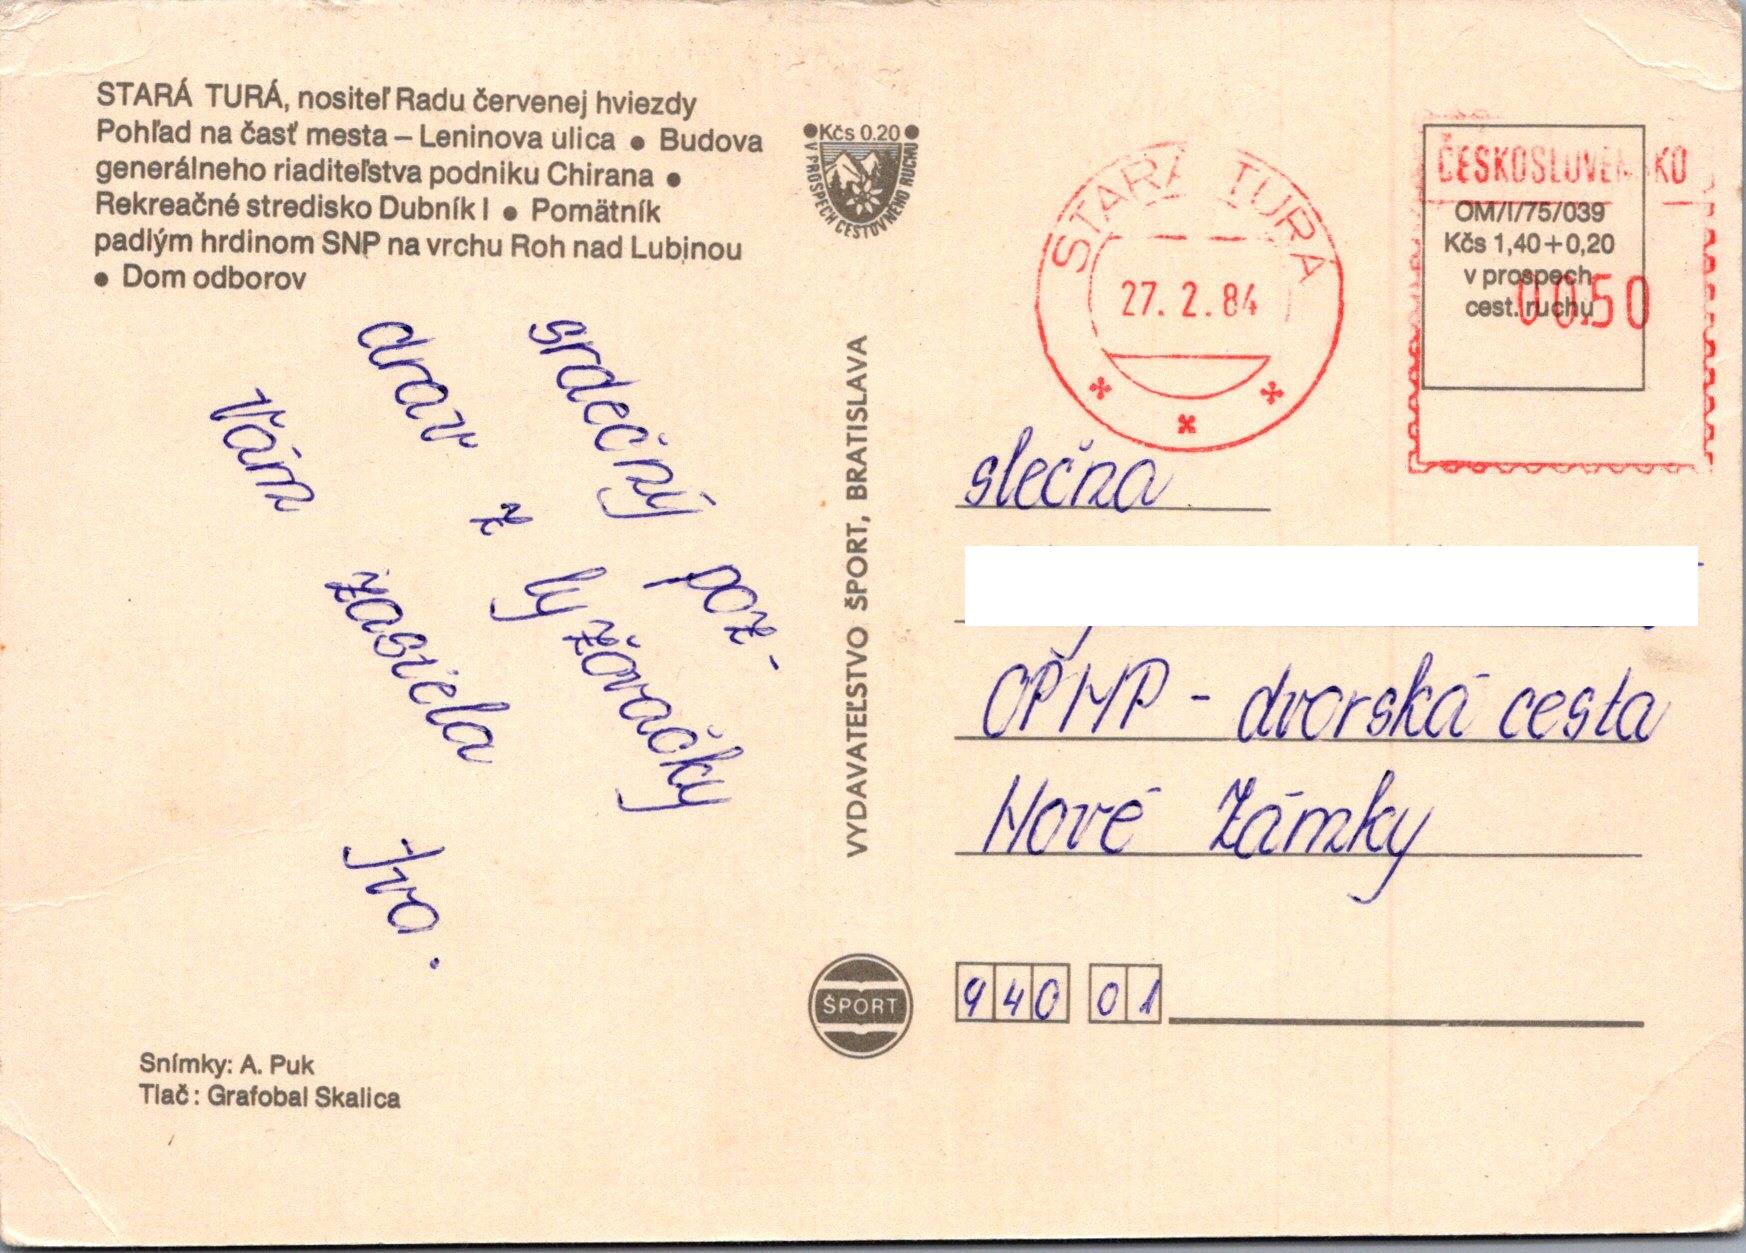 STARÁ TURÁ, nositeľ Radu červenej hviezdy
Pohľad na časť mesta – Leninova ulica ● Budova
generálneho riaditeľstva podniku Chirana ●
Rekreačné stredisko Dubník I ● Pomätník
padlým hrdinom SNP na vrchu Roh nad Lubinou
● Dom odborov
srdečný poz-
drav z lyžovačky
Vám zasiela
Ivo.
Snímky: A. Puk
Tlač: Grafobal Skalica
●Kčs 0.20●
V PROSPECH CESTOVNÉHO RUCHU
VYDAVATEĽSTVO ŠPORT, BRATISLAVA
ŠPORT
STARÁ TURÁ
27. 2. 84
ČESKOSLOVENSKO
OM/I/75/039
Kčs 1,40+0,20
v prospech
cest. ruchu
00.50
slečna
OPMP - dvorská cesta
Nové Zámky
940 01